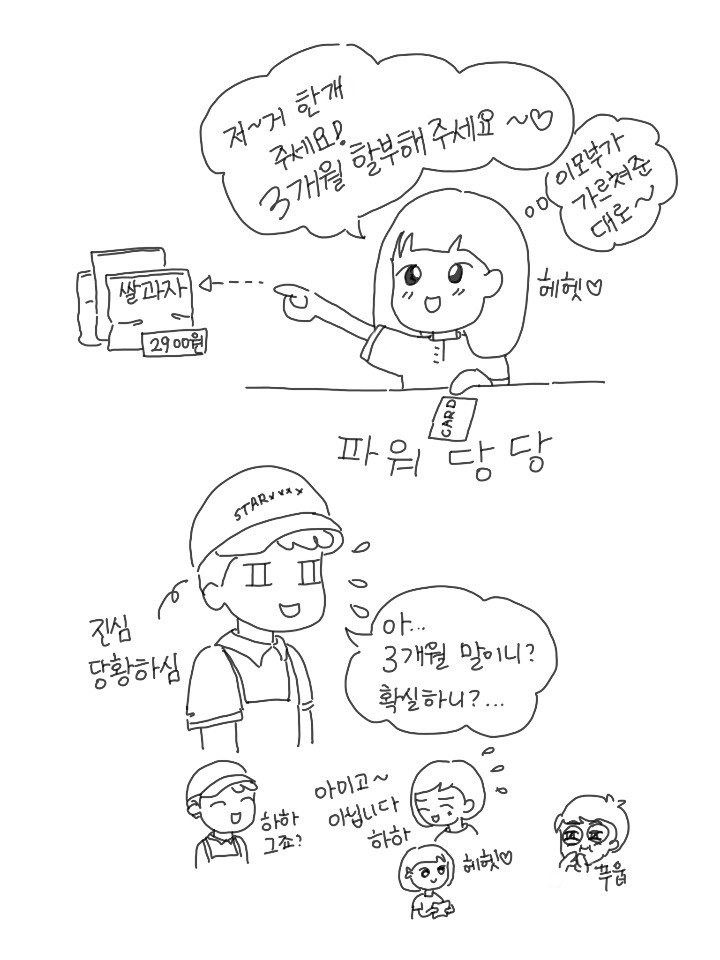 저~거 한개
주세요!
3개월 할부해 주세요 ~♡
이모부가
가르쳐준
대로~
쌀과자
2900원
헤헷♡
CARD
파워 당당
STARxxxx
진심
당황하심
아...
3개월 말이니?
확실하니?...
하하
그죠?
아이고~
아닙니다
하하
헤헷♡
푸웁